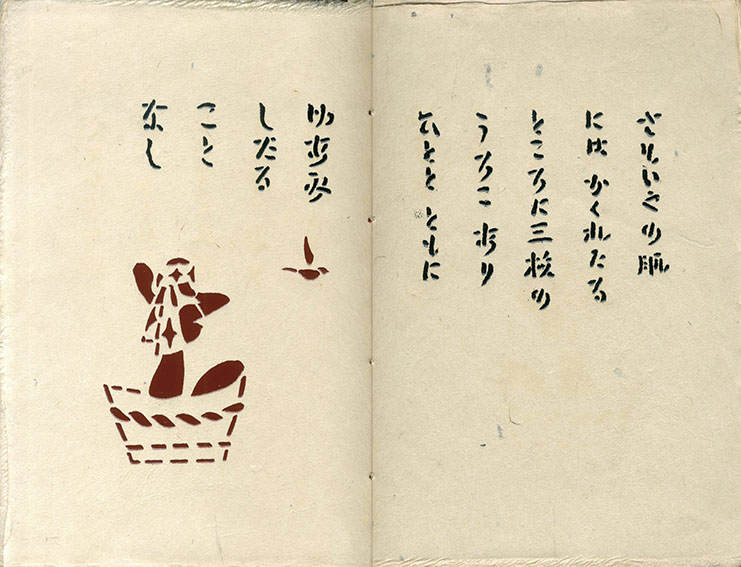 の肌
にはかくれたる
ところに三枚の
うろこあり
ひととともに
ゆあみ
したる
こと
なし